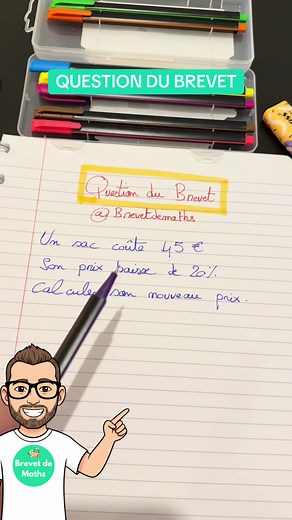 QUESTION DU BREVET
Question du Brevet
@Brevetdemaths
Un sac coûte 45 €
Son prix baisse de 20%.
Calculer son nouveau prix.
Brevet de
Maths